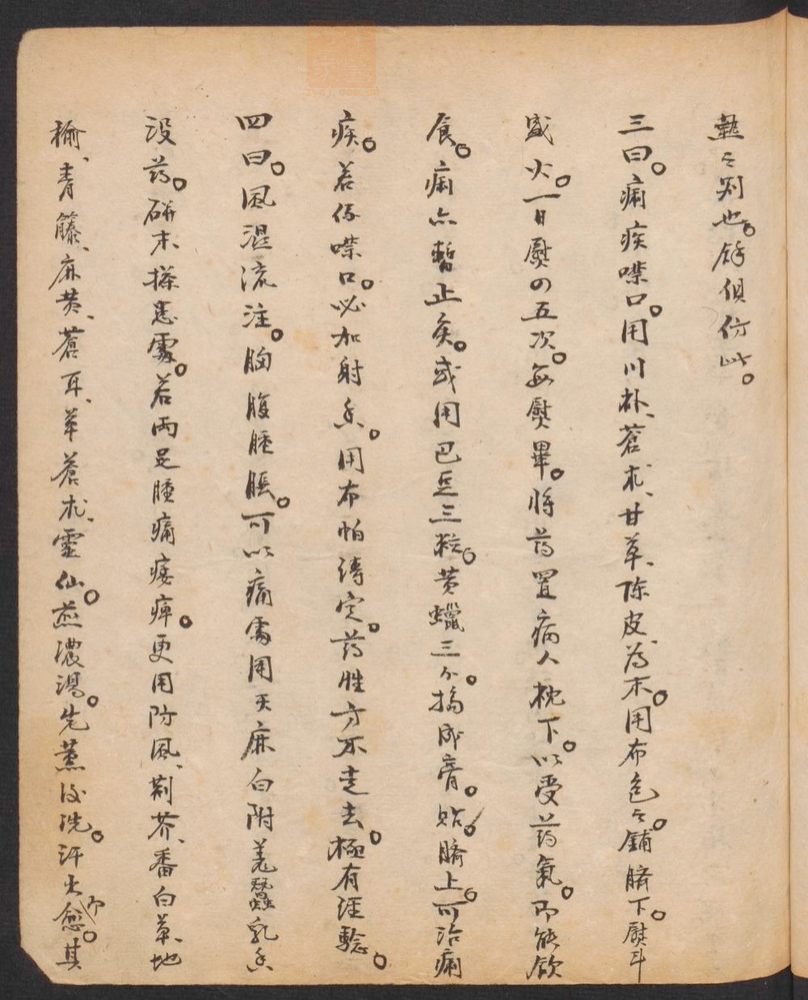 熱之別也。餘俱仿此。
三曰。痢疾噤口。用川朴、蒼朮、甘草、陈皮、為末。用布包之。鋪臍下。熨斗
盛火。一日熨の五次。每熨畢。將药置病人枕下。以受药氣。即能飲
食。痢亦暫止矣。或用巴豆三粒。黄蠟三个。搗成膏。贴臍上。可治痢
疾。若係噤口。必加射香。用布帕縛定。药性方不走去。極有经驗。
四曰。風湿流注。胸腹腫脹。可以痛處用天麻白附羌蠶乳香
没药。研末搽患處。若両足腫痛痿痺。更用防風、荊芥、番白草、地
榆、青籐、麻黄、蒼耳、草蒼朮、靈仙。煎濃湯。先薰後洗。汗出即愈。其